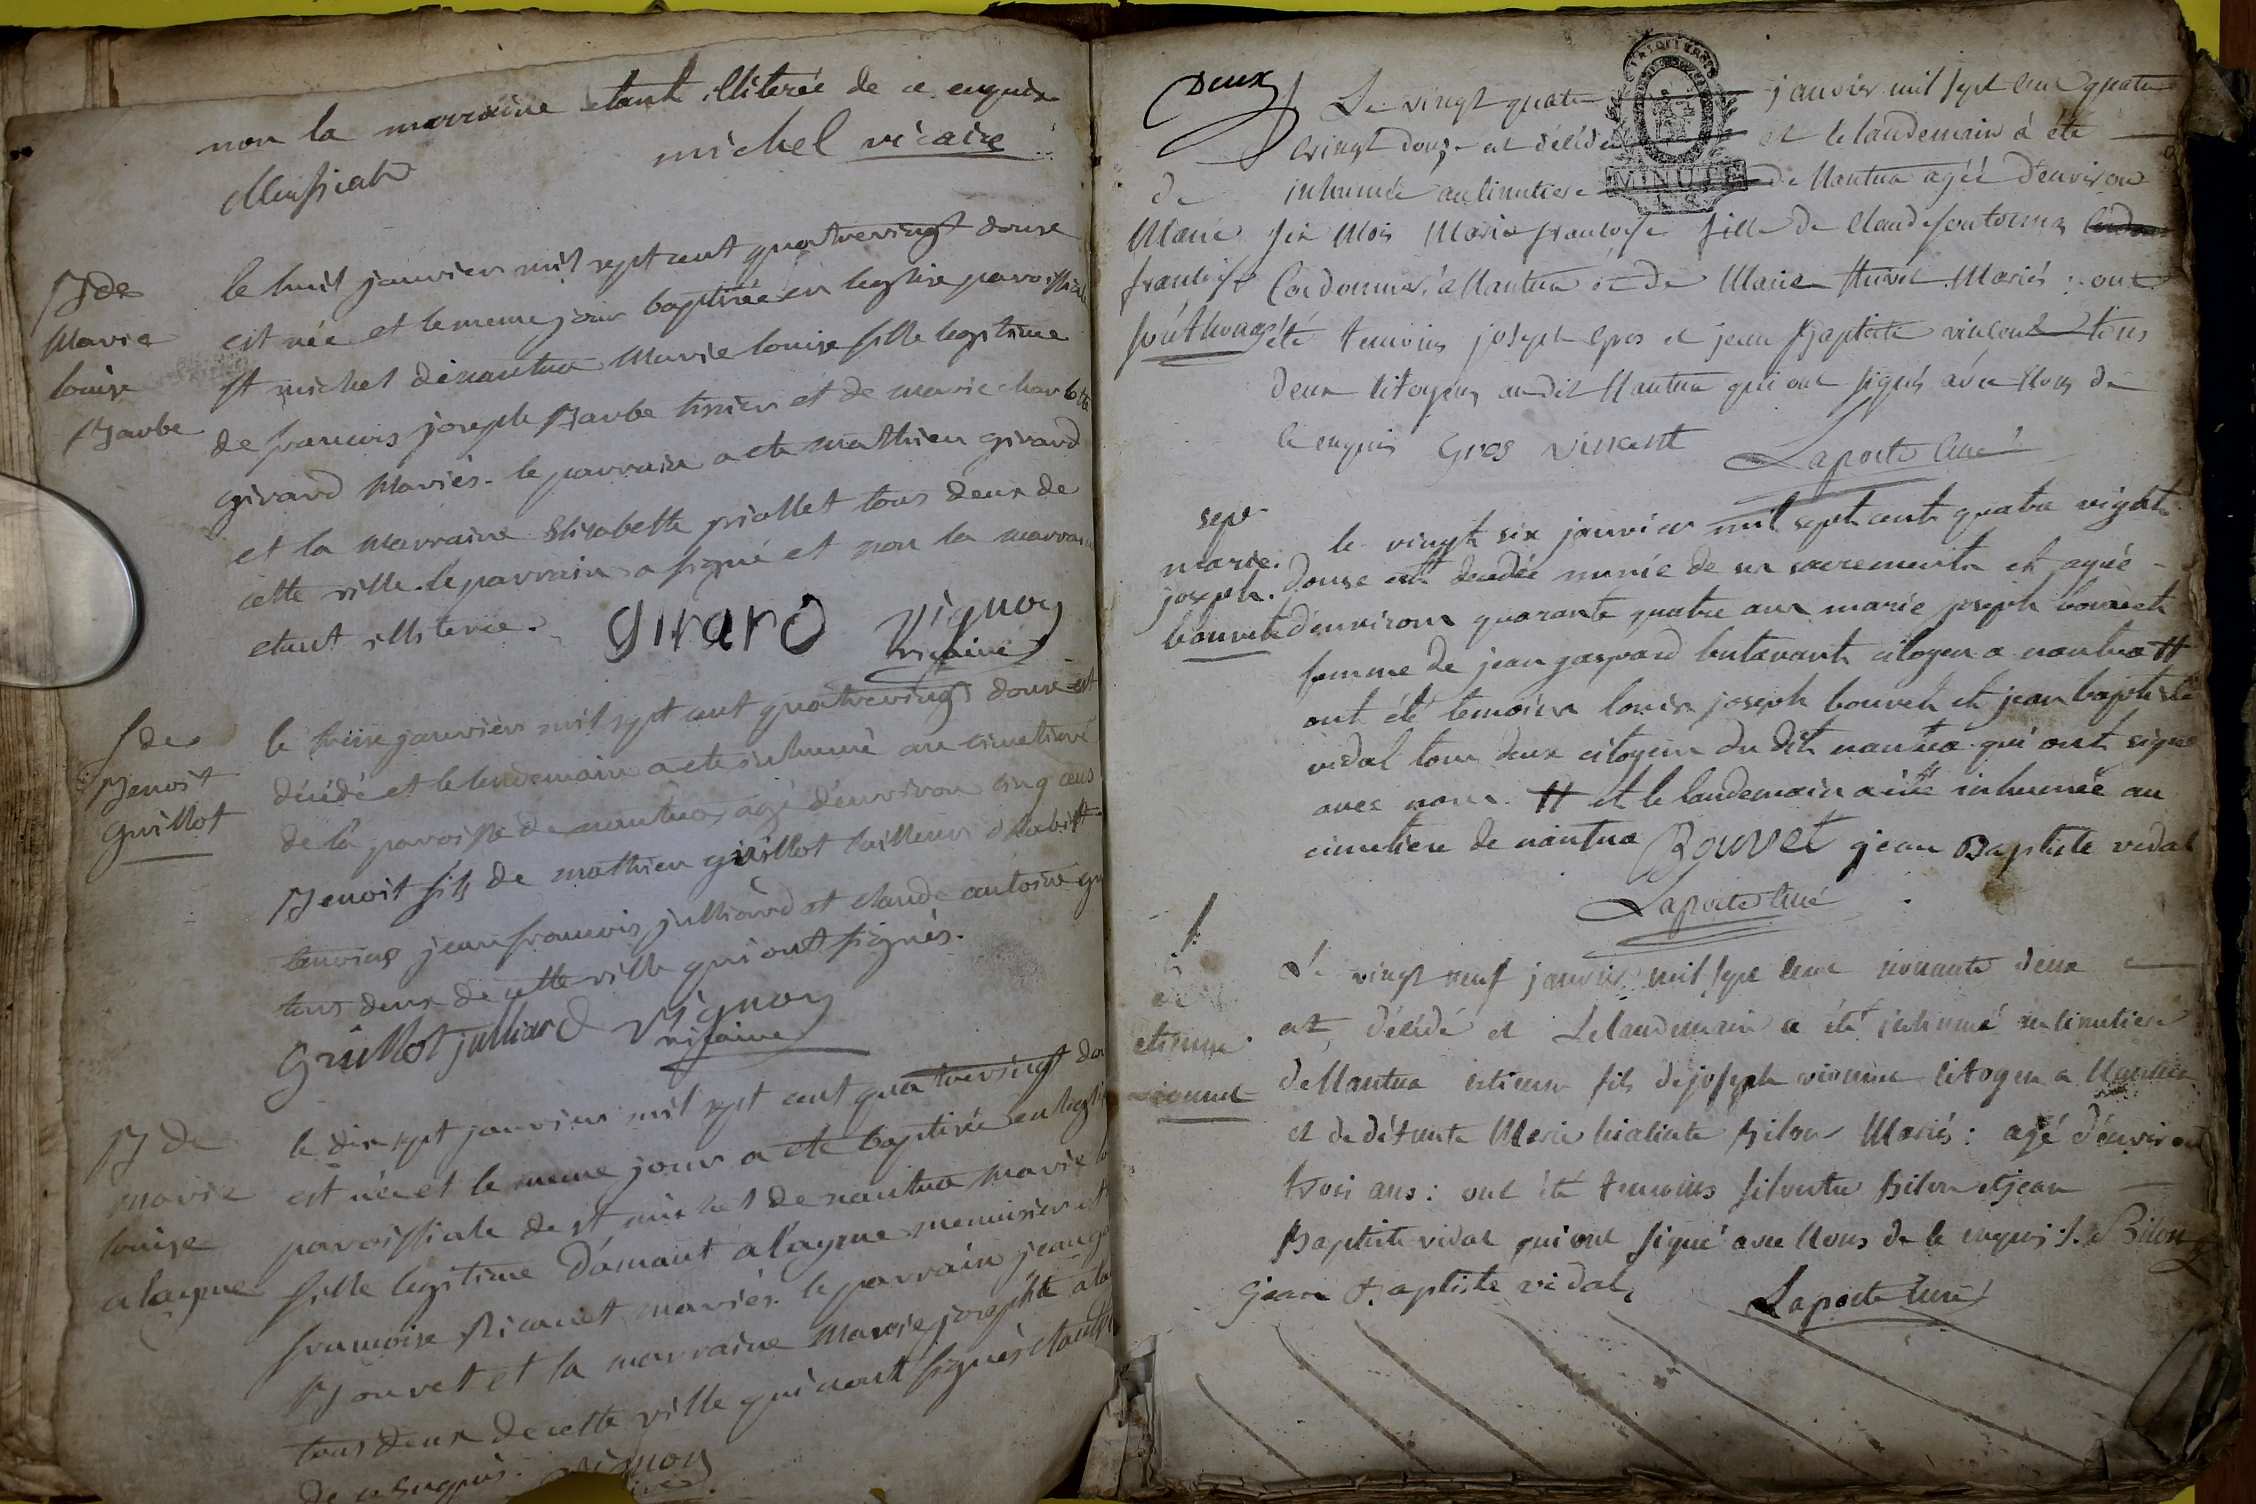 non la marraine etant illiterée de ce enquise
michel vicaire
B de
Marie
louise
Barbe
le huit janvier mil sept cent quatrevingt douze
est née et le meme jour baptisée en leglise paroissiale
st michel de nantua Marie louise fille legitime
de francois joseph Barbe et de marie charlotte
girard Mariés. le parrain a ete mathieu girard
et la marraine Elisabette priollet tous deux de
cette ville. le parrain a signé et non la marraine
etant illiterée.
Girard Vignon
vicaire
S de
Benoit
guillot
le treise janvier mil sept cent quatrevingt douze est
décédé et le lendemain a ete inhumé au cimetiere
de la paroisse de nantua, agé d'environ cinq ans
Benoit fils de mathieu guillot tailleur d'habit
temoins jean francois julliard et claude antoine
tous deux de cette ville qui ont signés.
Guillot julliard Vignon
vicaire
B de
marie
louise
alayme
le dix sept janvier mil sept cent quatrevingt
est née et le meme jour a ete baptisée en
paroissiale de st michel de nantua marie
fille legitime d'amant alayme menuisier et
francoise Ricanet mariés. le parrain jean
Bouvet et la marraine Marie josephte
tous deux de cette ville qui n'ont signés
de ce enquis. Vignon
Deux
S
de
Marie
francoise
Le vingt quatre janvier mil sept cent quatre
vingt douze est décédée et le landemain à été
inhumée au cimetiere de Nantua agéé d'environ
six Mois Marie francoise fille de Claude
Cordonnier à Nantua et de Marie Mariés : ont
été temoins joseph Gros et jean Baptiste vincent tous
deux citoyens audit Nantua qui ont signés avec Nous de
ce enquis Gros vincent Laporte Curé
MINUTE
sep.
marie.
joseph.
bouvet
le vingt six janvier mil sept cent quatre vight
douze est decedée munie de ses sacrements et agéé
d'environ quarante quatre ans marie joseph bouvet
femme de jean gaspard butavant citoyen a nantua #
ont été temoins louis joseph bouvet et jean baptiste
vidal tous deux citoyens du dit nantua qui ont signé
avec nous # et le landemain a été inhumée au
cimetiere de nantua Bouvet jean Baptiste vidal
Laporte Curé
S
de
etienne
vionnet
Le vingt neuf janvier mil sept cent nonante deux
est décédé et Le landemain a été inhumé au cimetiere
de Nantua etienne fils de joseph vionnet citoyen a Nantua
et de défunte Marie hiacinte Bilon Mariés : agé d'environ
trois ans : ont été temoins silvestre Bilon et jean
Baptiste vidal qui ont signé avec Nous de ce enquis S. Bilon
jean Baptiste vidal Laporte Curé